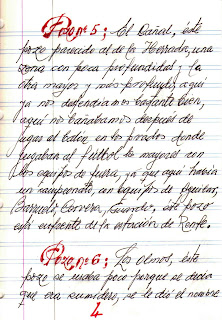 Pozo nº 5: El Cañal, este
pozo parecido al de la Herradura, una
zona con poca profundidad y la
otra mayor y más profunda, aquí
ya nos defendíamos bastante bien,
aquí nos bañábamos después de
jugar al balón en los prados donde
jugaban al fútbol los mayores con
los equipos de fuera, ya que aquí había
un campeonato, con equipos de Aguilar,
Barruelo, Cervera, Guardo, este pozo
está enfrente de la estación de Renfe.
Pozo nº 6: Los olmos, este
pozo se usaba poco porque se decía
que era sumidero, se le dió el nombre
4